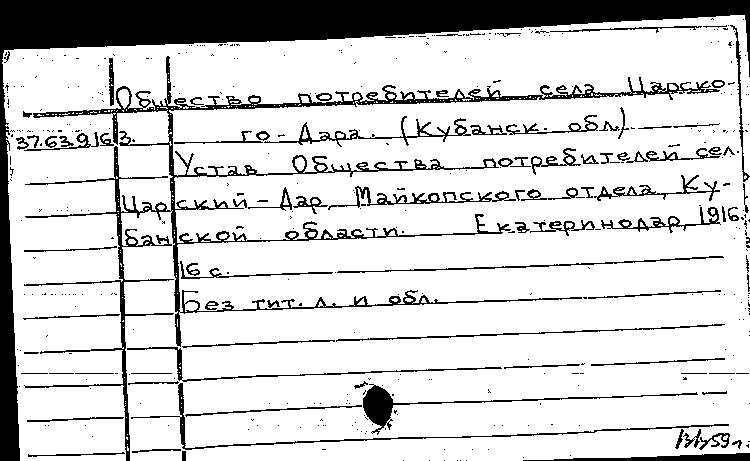 Общество потребителей села Царско-
37.63.9.163. го-Дара. (Кубанск. обл.)
Устав Общества потребителей сел.
Царский-Дар, Майкопского отдела, Ку-
банской области. Екатеринодар, 1916.
16 с.
Без тит. л. и обл.